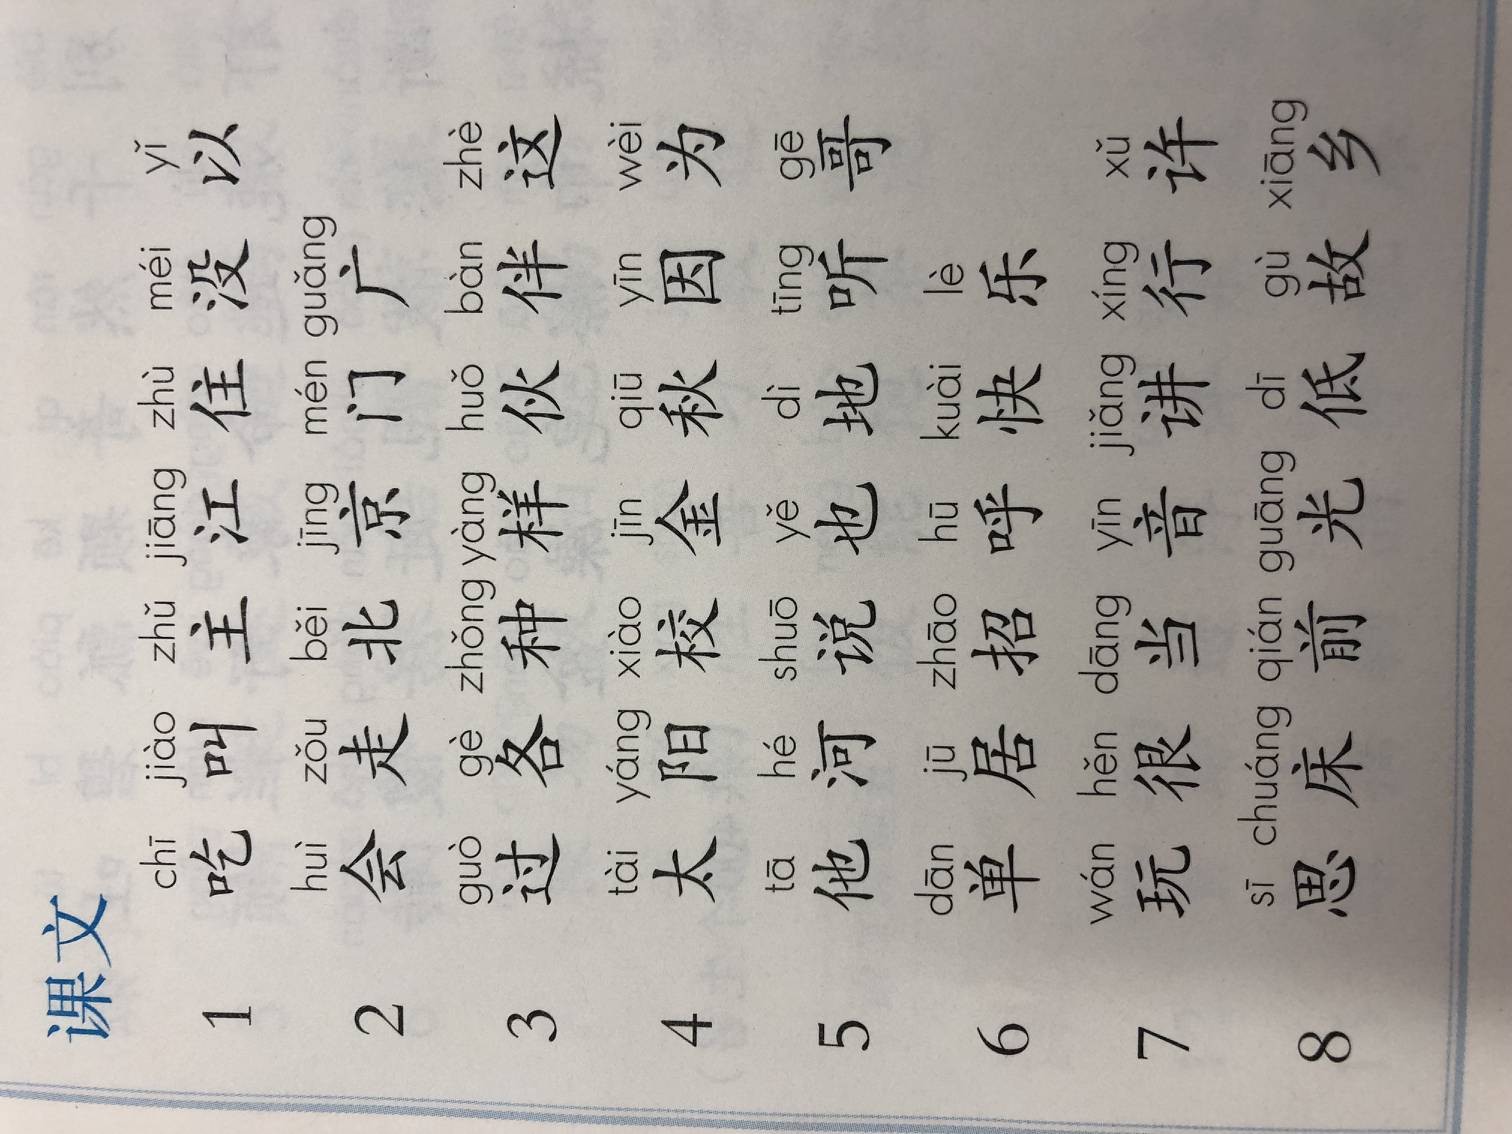 课文
chī jiào zhǔ jiāng zhù méi yǐ
1 吃 叫 主 江 住 没 以
huì zǒu běi jīng mén guǎng
2 会 走 北 京 门 广
guò gè zhǒng yàng huǒ bàn zhè
3 过 各 种 样 伙 伴 这
tài yáng xiào jīn qiū yīn wèi
4 太 阳 校 金 秋 因 为
tā hé shuō yě dì tīng gē
5 他 河 说 也 地 听 哥
dān jū zhāo hū kuài lè
6 单 居 招 呼 快 乐
wán hěn dāng yīn jiǎng xíng xǔ
7 玩 很 当 音 讲 行 许
sī chuáng qián guāng dī gù xiāng
8 思 床 前 光 低 故 乡